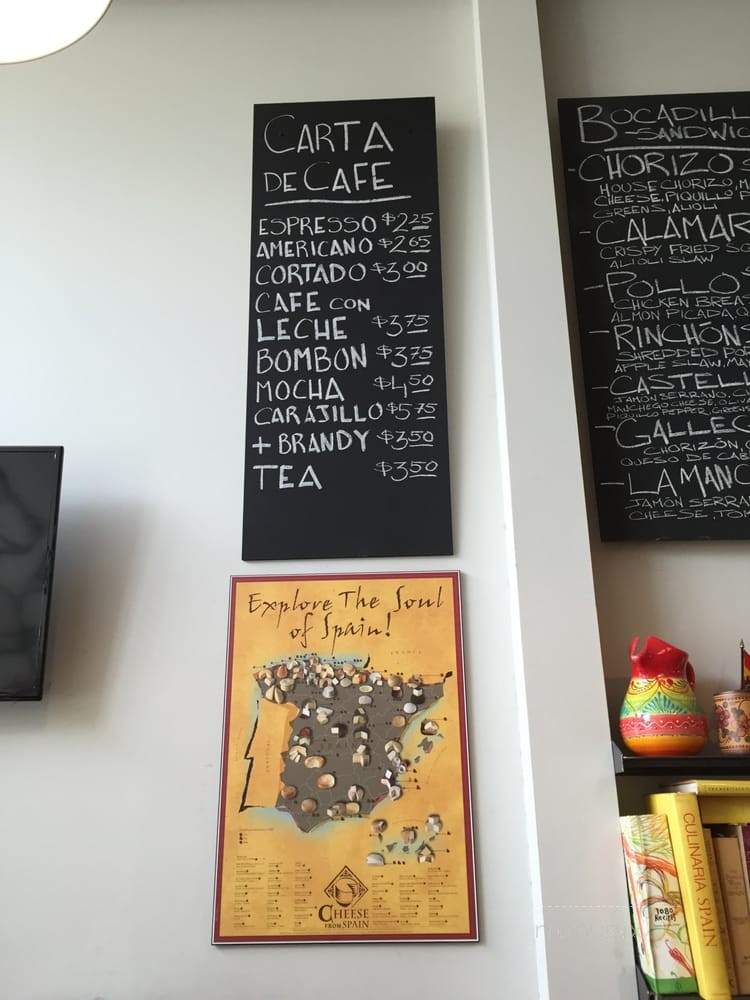 CARTA
DE CAFE
ESPRESSO $2.25
AMERICANO $2.65
CORTADO $3.00
CAFE CON
LECHE $3.75
BOMBON $3.75
MOCHA $4.50
CARAJILLO $5.75
+ BRANDY $3.50
TEA $3.50
BOCADILL
SANDWIC
- CHORIZO
HOUSE CHORIZO, M
CHEESE, PIQUILLO
GREENS, ALIOLI
- CALAMAR
CRISPY FRIED
ALIOLI SLAW
- POLLO
CHICKEN BREA
ALMON PICADA,
- RINCHÓN
SHREDDED POR
APPLE SLAW, MA
- CASTELL
JAMON SERRANO,
MANCHEGO CHEESE,
PIQUILLO PEPPER, GREEN
- GALLEG
CHORIZÓN,
QUESO DE CAB
- LA MANC
JAMÓN SERRA
CHEESE, TOM
Explore The Soul
of Spain!
FRANCE
SPAIN
CHEESE
FROM SPAIN
CULINARIA SPAIN
1080
RECIPES